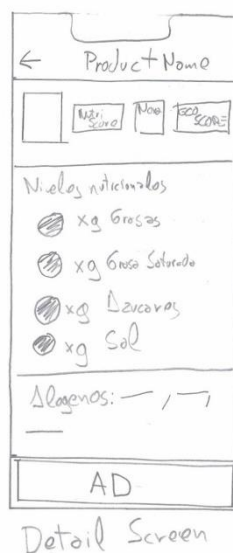 ← Product Name
Nutri Score
Nova
ECO SCORE
Niveles nutricionales
xg Grasas
xg Grasa Saturada
xg Azucares
xg Sal
Alogenos: — , —,
AD
Detail Screen